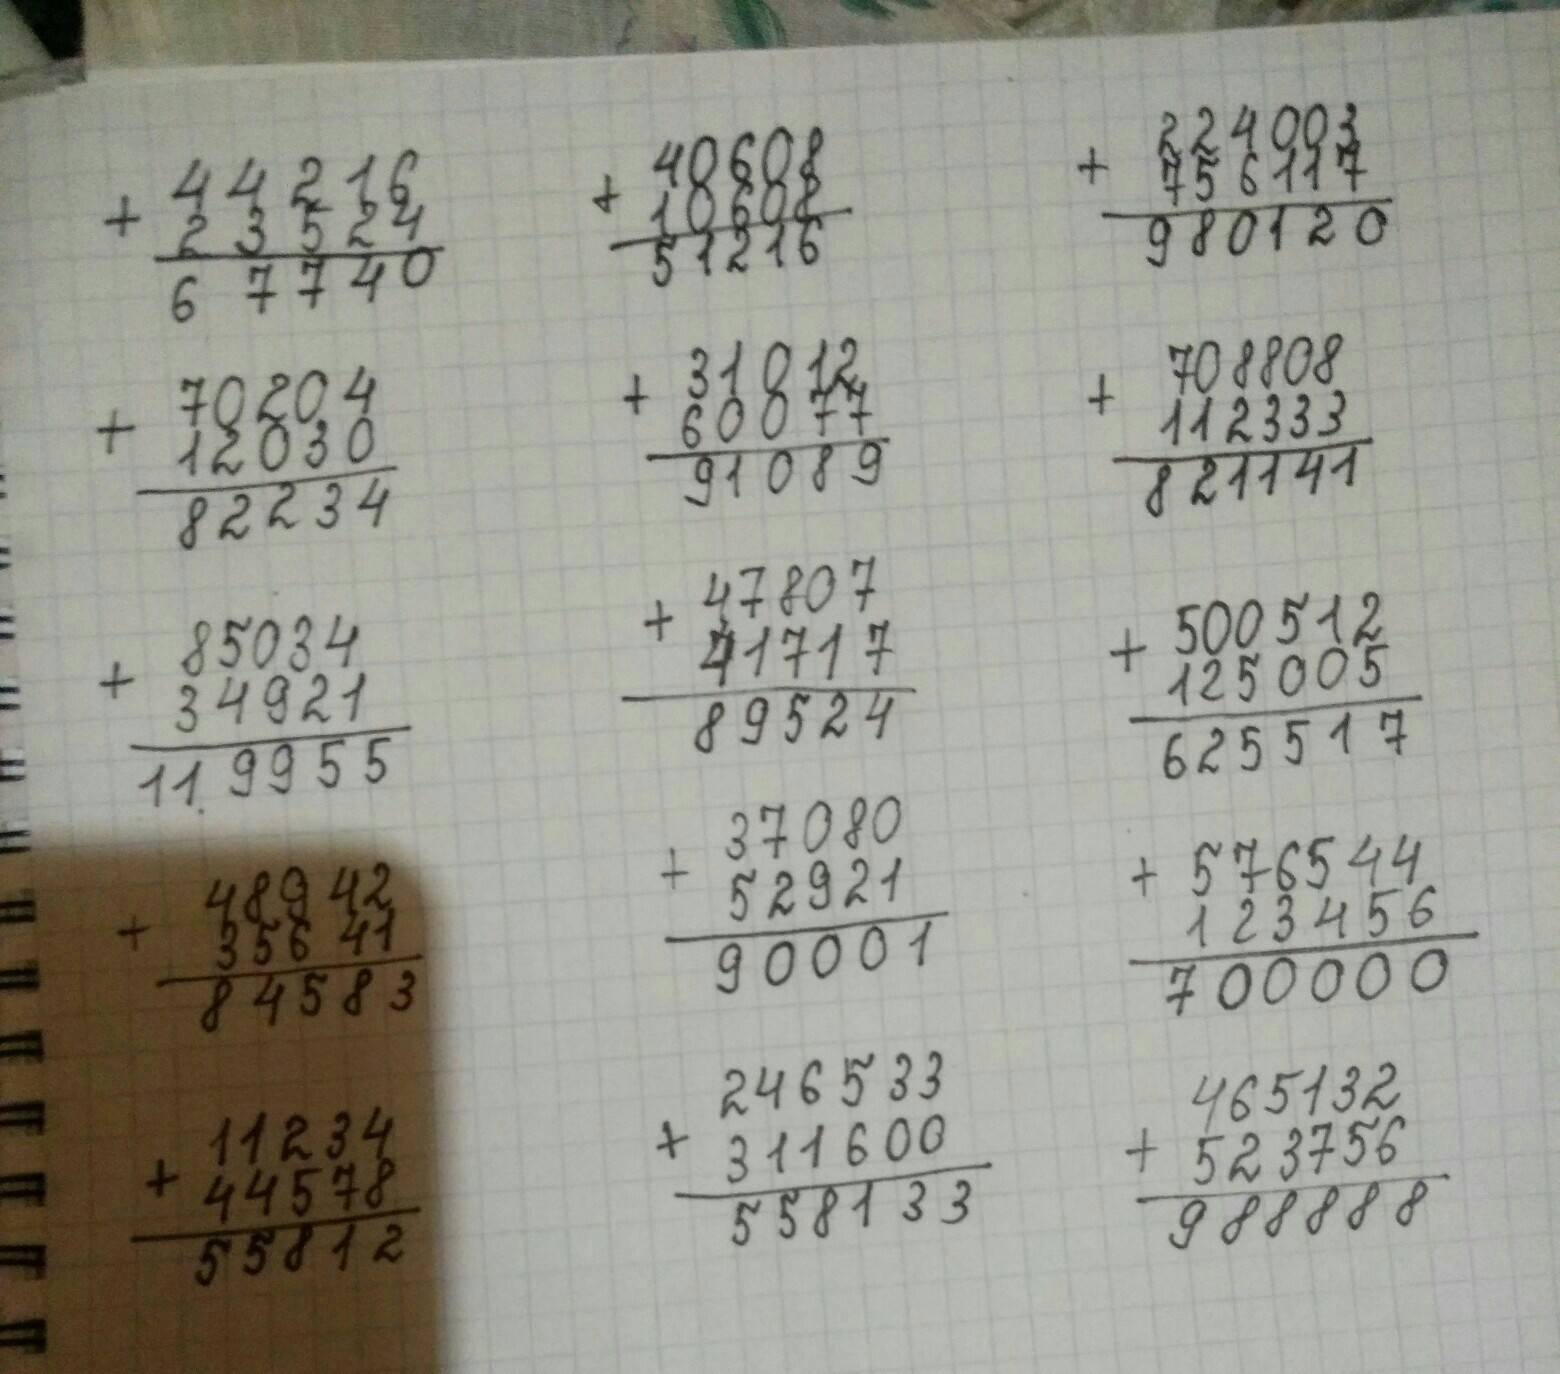 + 44216
23524
67740
+ 70204
12030
82234
+ 85034
34921
119955
+ 48942
35641
84583
11234
+ 44578
55812
+ 40608
10608
51216
+ 31012
60077
91089
+ 47807
41717
89524
+ 37080
52921
90001
246533
+ 311600
558133
+ 224003
756117
980120
+ 708808
112333
821141
+ 500512
125005
625517
+ 576544
123456
700000
465132
+ 523756
988888